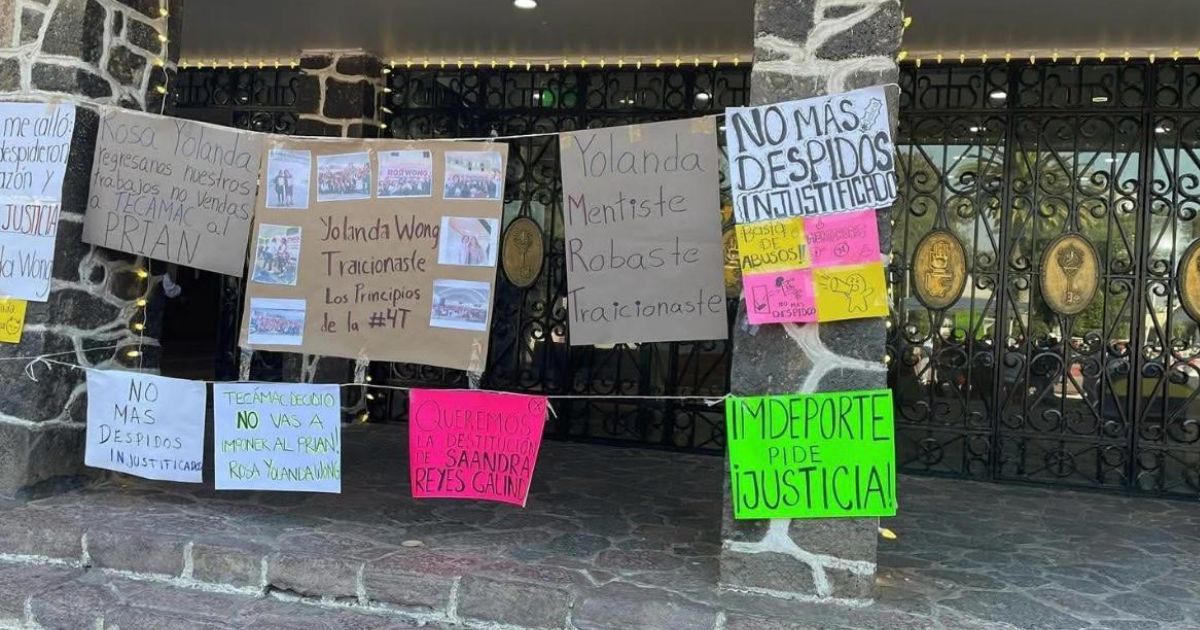 me calló
despidieron
azón y
JUSTICIA
Wong
Rosa Yolanda
regresanos nuestros
trabajos no vendas
a TECAMAC al
PRIAN
Yolanda Wong
Traicionaste
Los Principios
de la #4T
Yolanda
Mentiste
Robaste
Traicionaste
NO MÁS
DESPIDOS
INJUSTIFICADO
BASTA
DE
ABUSOS!!
NO MÁS
DESPIDO
NO
MAS
DESPIDOS
INJUSTIFICADOS
TECÁMAC DECIDIO
NO VAS A
IMPONER AL PRIAN!
ROSA YOLANDA WONG
QUEREMOS
LA DESTITUCIÓN
DE SAANDRA
REYES GALIND
IMDEPORTE
PIDE
¡JUSTICIA!